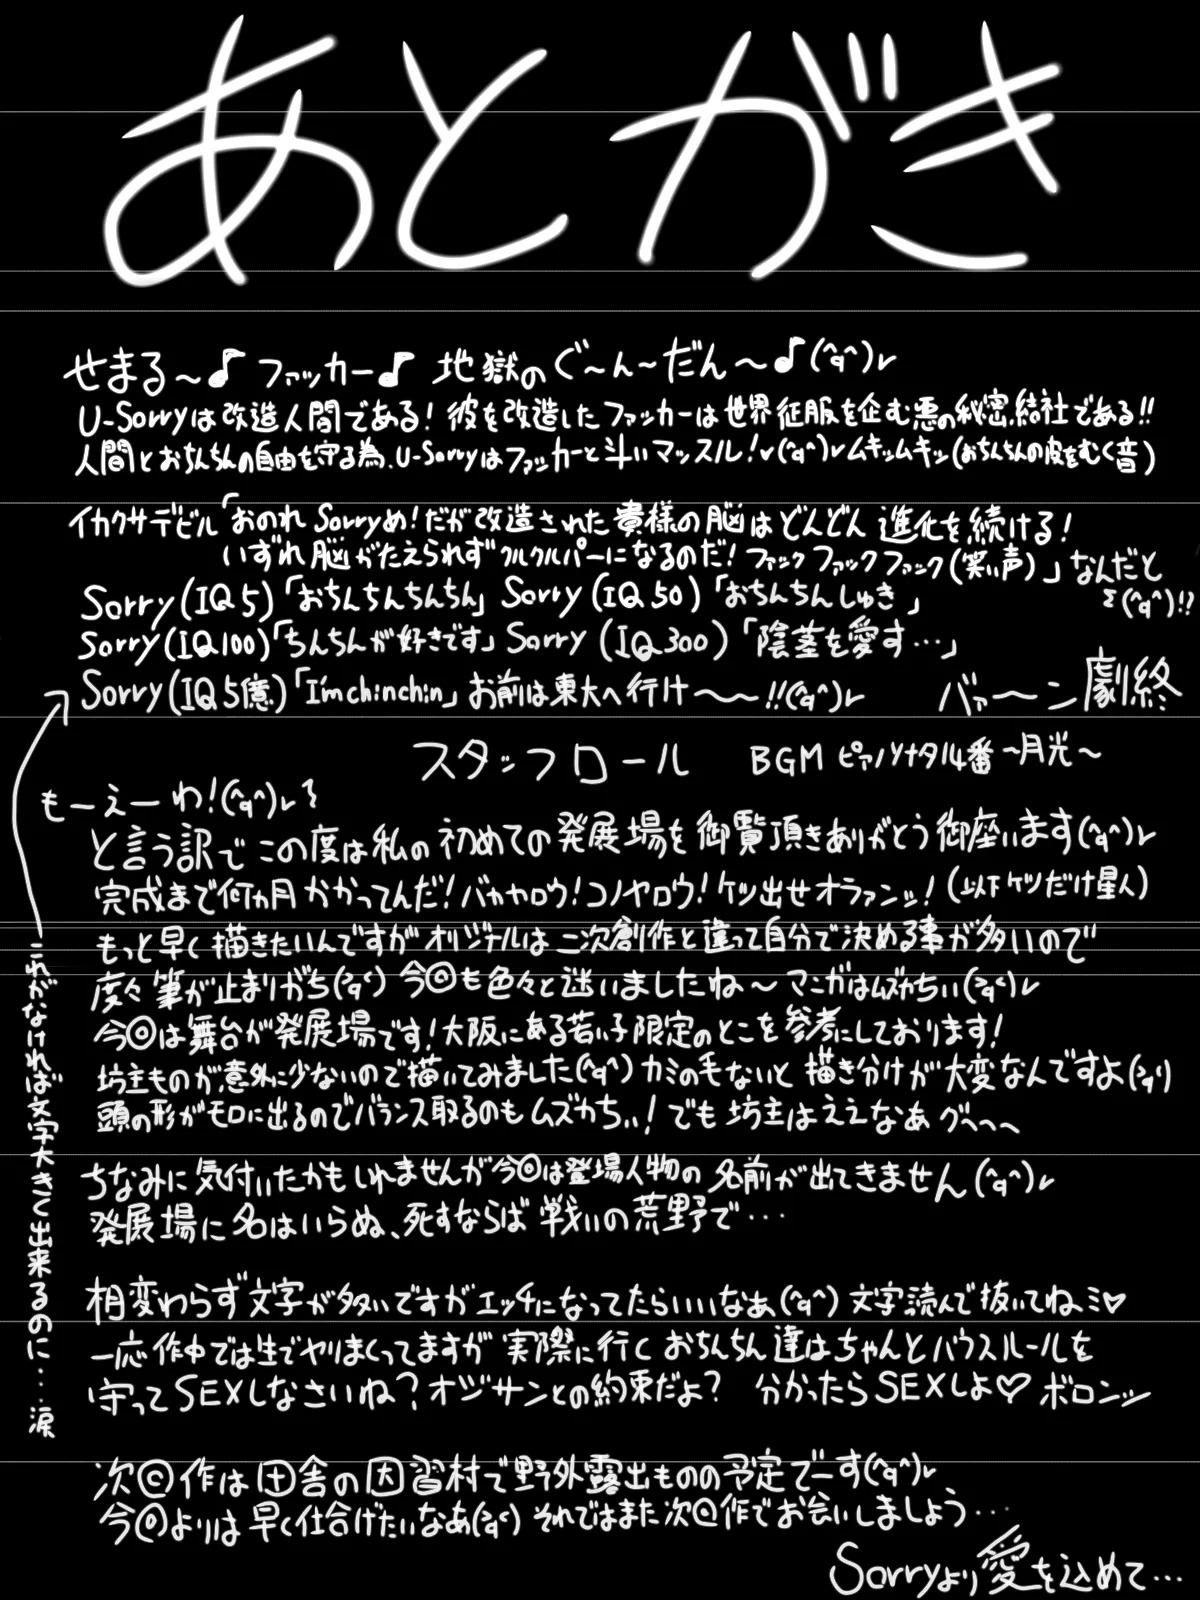 あとがき
せまる〜♪ ファッカー♪ 地獄のぐ〜ん〜だん〜♪(^q^)ﾚ
U-Sorryは改造人間である！彼を改造したファッカーは世界征服を企む悪の秘密結社である!!
人間とおちんちんの自由を守る為、U-Sorryはファッカーと斗いマッスル！ﾚ(^q^)ﾚムキッムキッ(おちんちんの皮をむく音)
イカクサデビル「おのれSorryめ！だが改造された貴様の脳はどんどん進化を続ける！
いずれ脳がたえられずクルクルパーになるのだ！ファックファックファック(笑い声)」なんだと
Σ(^q^)!?
Sorry(IQ5)「おちんちんちんちん」Sorry(IQ50)「おちんちんしゅき」
Sorry(IQ100)「ちんちんが好きです」Sorry(IQ300)「陰茎を愛す…」
Sorry(IQ5億)「I'm chinchin」お前は東大へ行け〜〜!!(^q^)ﾚ バァ〜ン劇終
スタッフロール BGM ピアノソナタ14番〜月光〜
もーえーわ！(^q^)ﾚミ
と言う訳でこの度は私の初めての発展場を御覧頂きありがとう御座います(^q^)ﾚ
完成まで何ヵ月かかってんだ！バカヤロウ！コノヤロウ！ケツ出せオラァンッ！(以下ケツだけ星人)
もっと早く描きたいんですがオリジナルは二次創作と違って自分で決める事が多いので
度々筆が止まりがち(>q<) 今回も色々と迷いましたね〜マンガはムズかちぃ(>q<)ﾚ
今回は舞台が発展場です！大阪にある若い子限定のとこを参考にしております！
坊主ものが意外に少ないので描いてみました(^q^)カミの毛ないと描き分けが大変なんですよ(>q<)
頭の形がモロに出るのでバランス取るのもムズかちぃ！でも坊主はええなあグヘヘヘ
ちなみに気付いたかもしれませんが今回は登場人物の名前が出てきません(^q^)ﾚ
発展場に名はいらぬ、死すならば戦いの荒野で…
相変わらず文字が多いですがエッチになってたらいいなあ(^q^)文字読んで抜いてねミ♡
一応作中では生でヤリまくってますが実際に行くおちんちん達はちゃんとハウスルールを
守ってSEXしなさいね？オジサンとの約束だよ？ 分かったらSEXしよ♡ボロンッ
次回作は田舎の因習村で野外露出ものの予定でーす(^q^)ﾚ
今回よりは早く仕合げたいなあ(>q<)それではまた次回作でお会いしましょう…
Sorryより愛を込めて…
これがなければ文字大きく出来るのに…涙